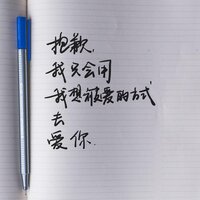 抱歉,
我只会用
我想被爱的方式
去
爱你.